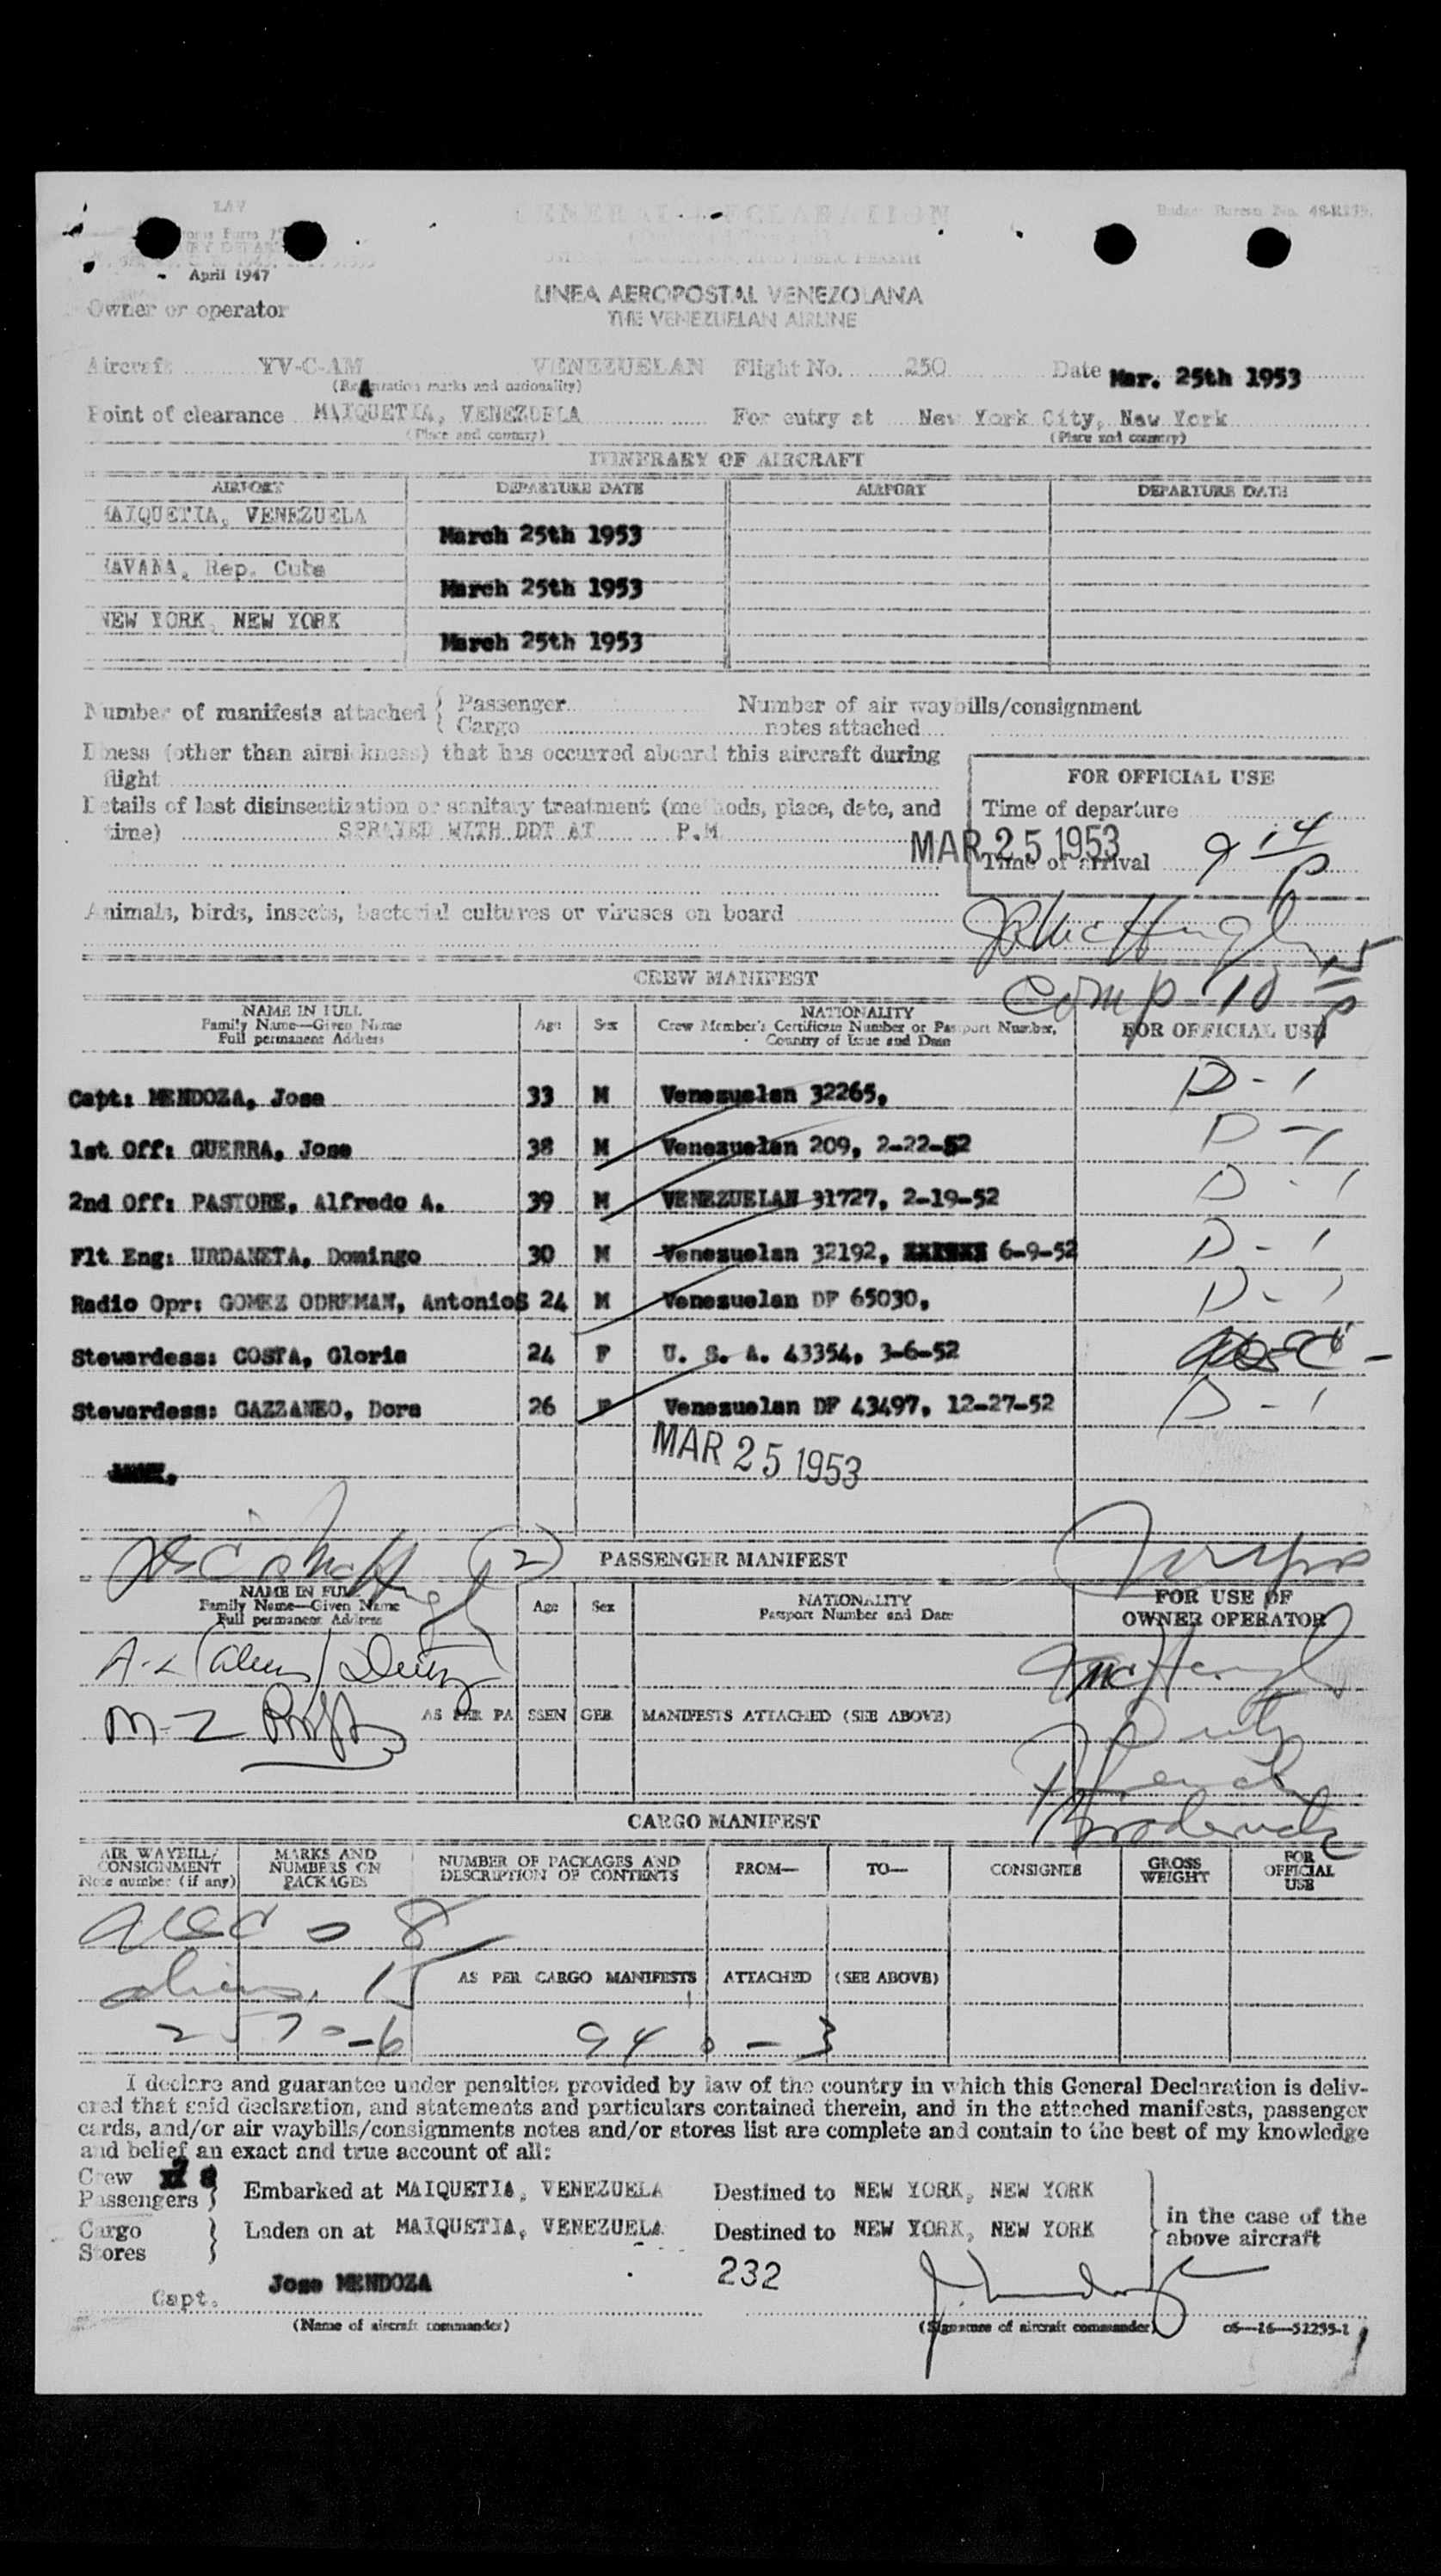 LAV
April 1947
GENERAL DECLARATION
Budget Bureau No. 48-R199.
Owner or operator
LINEA AEROPOSTAL VENEZOLANA
THE VENEZUELAN AIRLINE
Aircraft YV-C-AM VENEZUELAN Flight No. 250 Date Mar. 25th 1953
A
(Registration marks and nationality)
Point of clearance MAIQUETIA, VENEZUELA For entry at New York City, New York
(Place and country) (Place and country)
ITINERARY OF AIRCRAFT
AIRPORT DEPARTURE DATE AIRPORT DEPARTURE DATE
MAIQUETIA, VENEZUELA
March 25th 1953
HAVANA, Rep. Cuba
March 25th 1953
NEW YORK, NEW YORK
March 25th 1953
Number of manifests attached { Passenger Number of air waybills/consignment
Cargo notes attached
Illness (other than airsickness) that has occurred aboard this aircraft during
flight
FOR OFFICIAL USE
Details of last disinsectization or sanitary treatment (methods, place, date, and
time) SPRAYED WITH DDT AT P.M
Time of departure
MAR 25 1953
Time of arrival 9 14/P
Animals, birds, insects, bacterial cultures or viruses on board
Comp 10 15/P
CREW MANIFEST
NAME IN FULL
Family Name—Given Name
Full permanent Address
Age Sex
NATIONALITY
Crew Member's Certificate Number or Passport Number,
Country of Issue and Date
FOR OFFICIAL USE
Capt: MENDOZA, Jose 33 M Venezuelan 32265, D-1
1st Off: GUERRA, Jose 38 M Venezuelan 209, 2-22-52 D-1
2nd Off: PASTORE, Alfredo A. 39 M VENEZUELAN 31727, 2-19-52 D-1
Flt Eng: URDANETA, Domingo 30 M Venezuelan 32192, 6-9-52 D-1
Radio Opr: GOMEZ ODREMAN, Antonio 24 M Venezuelan DF 65030, D-1
Stewardess: COSTA, Gloria 24 F U. S. A. 43354, 3-6-52 USC
Stewardess: GAZZANEO, Dora 26 F Venezuelan DF 43497, 12-27-52 D-1
MAR 25 1953
(2)
PASSENGER MANIFEST
NAME IN FULL
Family Name—Given Name
Full permanent Address
Age Sex
NATIONALITY
Passport Number and Date
FOR USE OF
OWNER OPERATOR
AS PER PASSENGER MANIFESTS ATTACHED (SEE ABOVE)
CARGO MANIFEST
AIR WAYBILL/
CONSIGNMENT
Note number (if any)
MARKS AND
NUMBERS ON
PACKAGES
NUMBER OF PACKAGES AND
DESCRIPTION OF CONTENTS
FROM— TO— CONSIGNEE
GROSS
WEIGHT
FOR
OFFICIAL
USE
8
aliens, 15
AS PER CARGO MANIFESTS ATTACHED (SEE ABOVE)
I declare and guarantee under penalties provided by law of the country in which this General Declaration is deliv-
ered that said declaration, and statements and particulars contained therein, and in the attached manifests, passenger
cards, and/or air waybills/consignments notes and/or stores list are complete and contain to the best of my knowledge
and belief an exact and true account of all:
Crew
Passengers } Embarked at MAIQUETIA, VENEZUELA Destined to NEW YORK, NEW YORK
Cargo } Laden on at MAIQUETIA, VENEZUELA Destined to NEW YORK, NEW YORK
Stores
in the case of the
above aircraft
232
Capt. Jose MENDOZA
(Name of aircraft commander) (Signature of aircraft commander) 06—16—52295-1